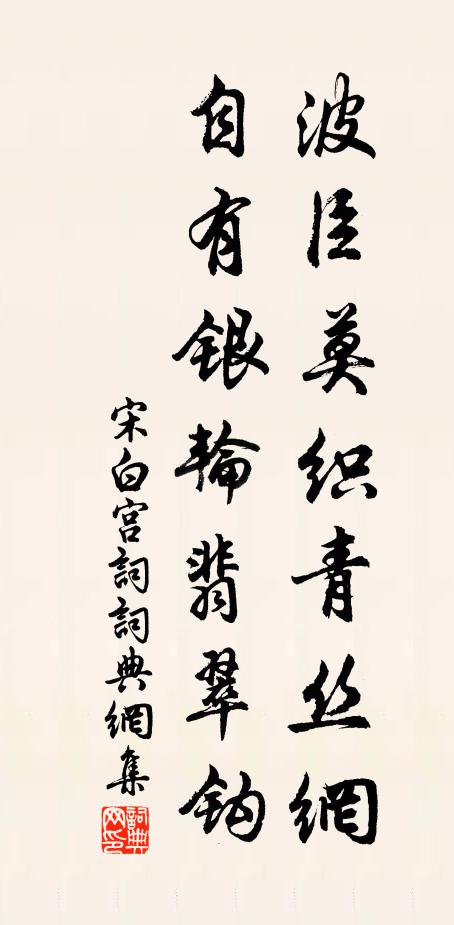 波臣莫织青丝網
自有银輪翡翠钩
宋白宫詞詞典網集
詞典網印